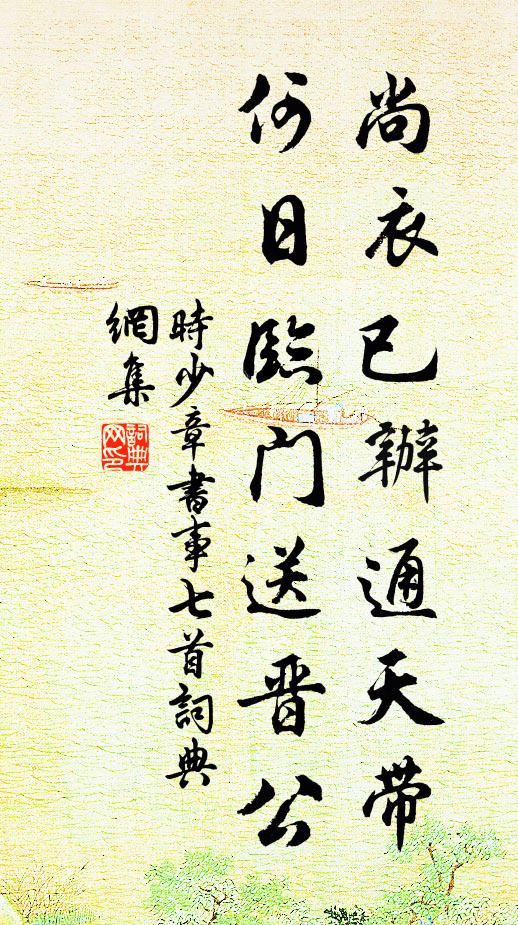 尚衣已辦通天帶
何日臨門送晋公
時少章書事七首詞典
網集
詞典
网印